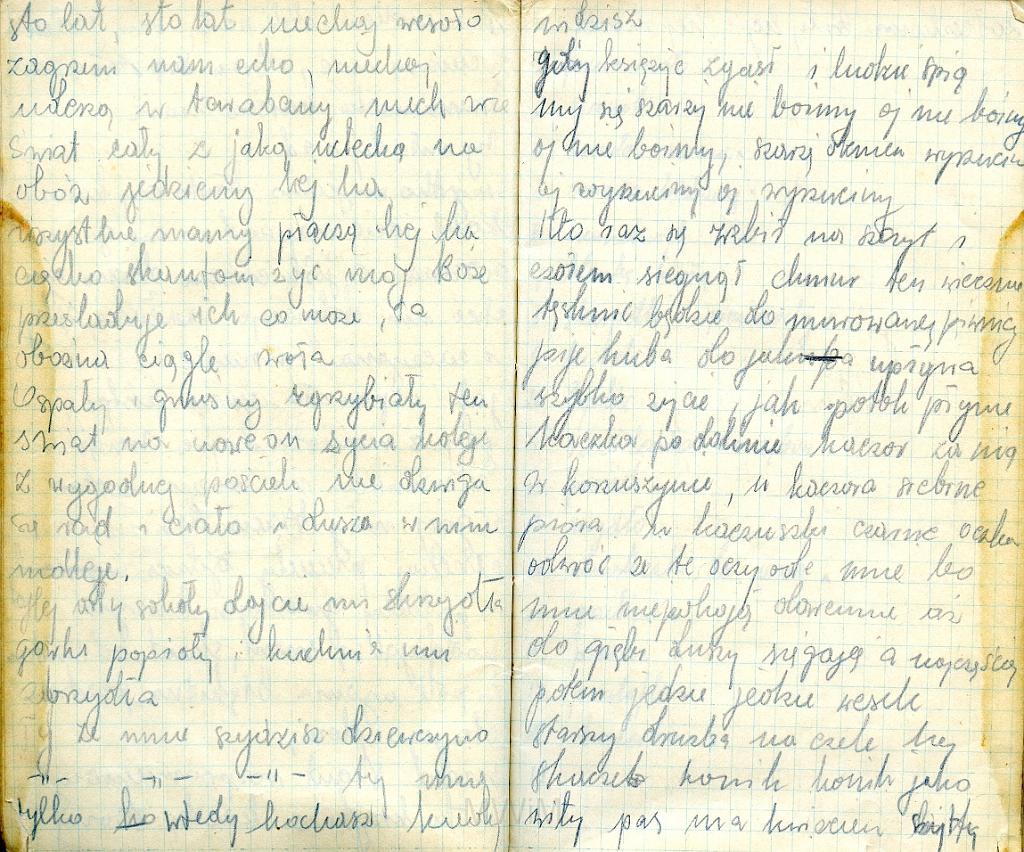 sto lat, sto lat niechaj wesoło
zagrzmi nam echo, niechaj
uderzą w tarabany niech wie
świat cały z jaką uciechą na
obóz jedziemy hej ha
wszystkie mamy płaczą hej ha
ciężko skautom żyć mój Boże
prześladuje ich co może, ta
oboźna ciągle woła
Ospały i gnuśny zgrzybiały ten
świat na nowe on życia koleje
Z wygodnej pościeli nie dźwiga
się rad i ciało i dusza w nim
mdleje.
Hej wy sokoły dajcie mi skrzydła
garki popioły i kuchnia mi
zbrzydła
Ty ze mnie szydzisz dziewczyno
-"- -"- -"- ty mnie
tylko wtedy kochasz kiedy
widzisz
gdy księżyc zgasł i ludzie śpią
my się szarży nie boimy oj nie boimy
oj nie boimy, szarżę oknem wyrzucim
oj wyrzucimy oj wyrzucimy
Kto raz się wzbił na szczyt i
czołem sięgnął chmur ten wiecznie
tęsknić będzie do murowanej piwnicy
upływa
szybko życie, jak potok płynie
kaczka po dolinie kaczor za nią
w kożuszynie, u kaczora srebrne
pióra u kaczuszki czarne oczka
odwróć że te oczy ode mnie bo
mnie niepokoją daremnie aż
do głębi duszy sięgają a najczęściej
potem jedzie jedzie wesele
starszy drużba na czele hej
skacze konik konik jako
wity pas ma kwieciem